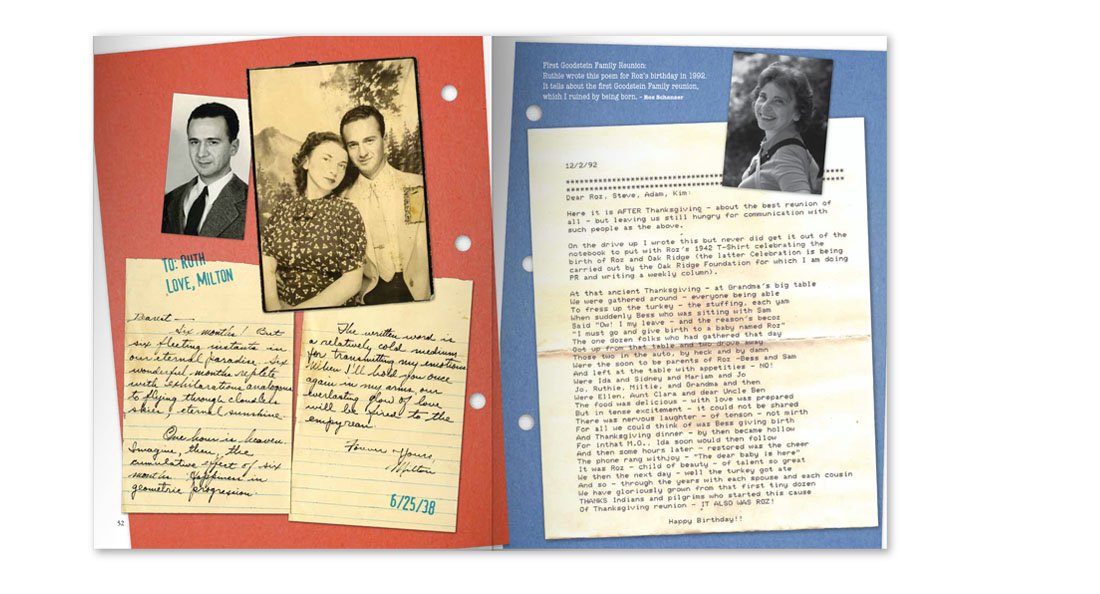 TO: RUTH
LOVE, MILTON
Dearest —
Six months! But
six fleeting instants in
our eternal paradise. Six
wonderful months replete
with exhilarations analogous
to flying through cloudless
skies, eternal sunshine.
One hour is heaven.
Imagine, then, the
cumulative effect of six
months. Happiness in
geometric progression.
The written word is
a relatively cold medium
for transmitting my emotions.
When I'll hold you once
again in my arms, our
everlasting glow of love
will be fired to the
empyrean.
Forever Yours,
Milton
6/25/38
52
First Goodstein Family Reunion:
Ruthie wrote this poem for Roz's birthday in 1992.
It tells about the first Goodstein Family reunion,
which I ruined by being born. – Roz Schanzer
12/2/92
Dear Roz, Steve, Adam, Kim:
Here it is AFTER Thanksgiving - about the best reunion of
all - but leaving us still hungry for communication with
such people as the above.
On the drive up I wrote this but never did get it out of the
notebook to put with Roz's 1942 T-Shirt celebrating the
birth of Roz and Oak Ridge (the latter Celebration is being
carried out by the Oak Ridge Foundation for which I am doing
PR and writing a weekly column).
At that ancient Thanksgiving - at Grandma's big table
We were gathered around - everyone being able
To fress up the turkey - the stuffing, each yam
When suddenly Bess who was sitting with Sam
Said "Ow! I my leave - and the reason's becoz
"I must go and give birth to a baby named Roz"
The one dozen folks who had gathered that day
Got up from that table and two drove away
Those two in the auto, by heck and by damn
Were the soon to be parents of Roz -Bess and Sam
And left at the table with appetities - NO!
Were Ida and Sidney and Mariam and Jo
Jo, Ruthie, Miltie, and Grandma and then
Were Ellen, Aunt Clara and dear Uncle Ben
The food was delicious - with love was prepared
But in tense excitement - it could not be shared
There was nervous laughter - of tenson - not mirth
For all we could think of was Bess giving birth
And Thanksgiving dinner - by then became hollow
For inthat M.O., Ida soon would then follow
And then some hours later - restored was the cheer
The phone rang withjoy - "The dear baby is here"
It was Roz - child of beauty - of talent so great
We then the next day - well the turkey got ate
And so - through the years with each spouse and each cousin
We have gloriously grown from that first tiny dozen
THANKS Indians and pilgrims who started this cause
Of Thanksgiving reunion - IT ALSO WAS ROZ!
Happy Birthday!!